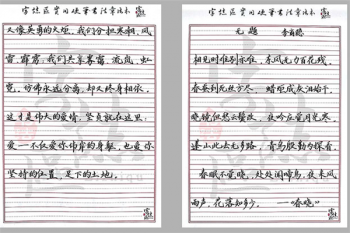 实用硬笔书法
又像英勇的火炬。我们分担寒潮、风
雷、霹雳;我们共享雾霭、流岚、虹
霓。仿佛永远分离,却又终身相依。
这才是伟大的爱情,坚贞就在这里:
爱——不仅爱你伟岸的身躯,也爱你
坚持的位置,足下的土地。
实用硬笔书法
无题 李商隐
相见时难别亦难,东风无力百花残。
春蚕到死丝方尽,蜡炬成灰泪始干。
晓镜但愁云鬓改,夜吟应觉月光寒。
蓬山此去无多路,青鸟殷勤为探看。
春眠不觉晓,处处闻啼鸟。夜来风
雨声,花落知多少。——“春晓”